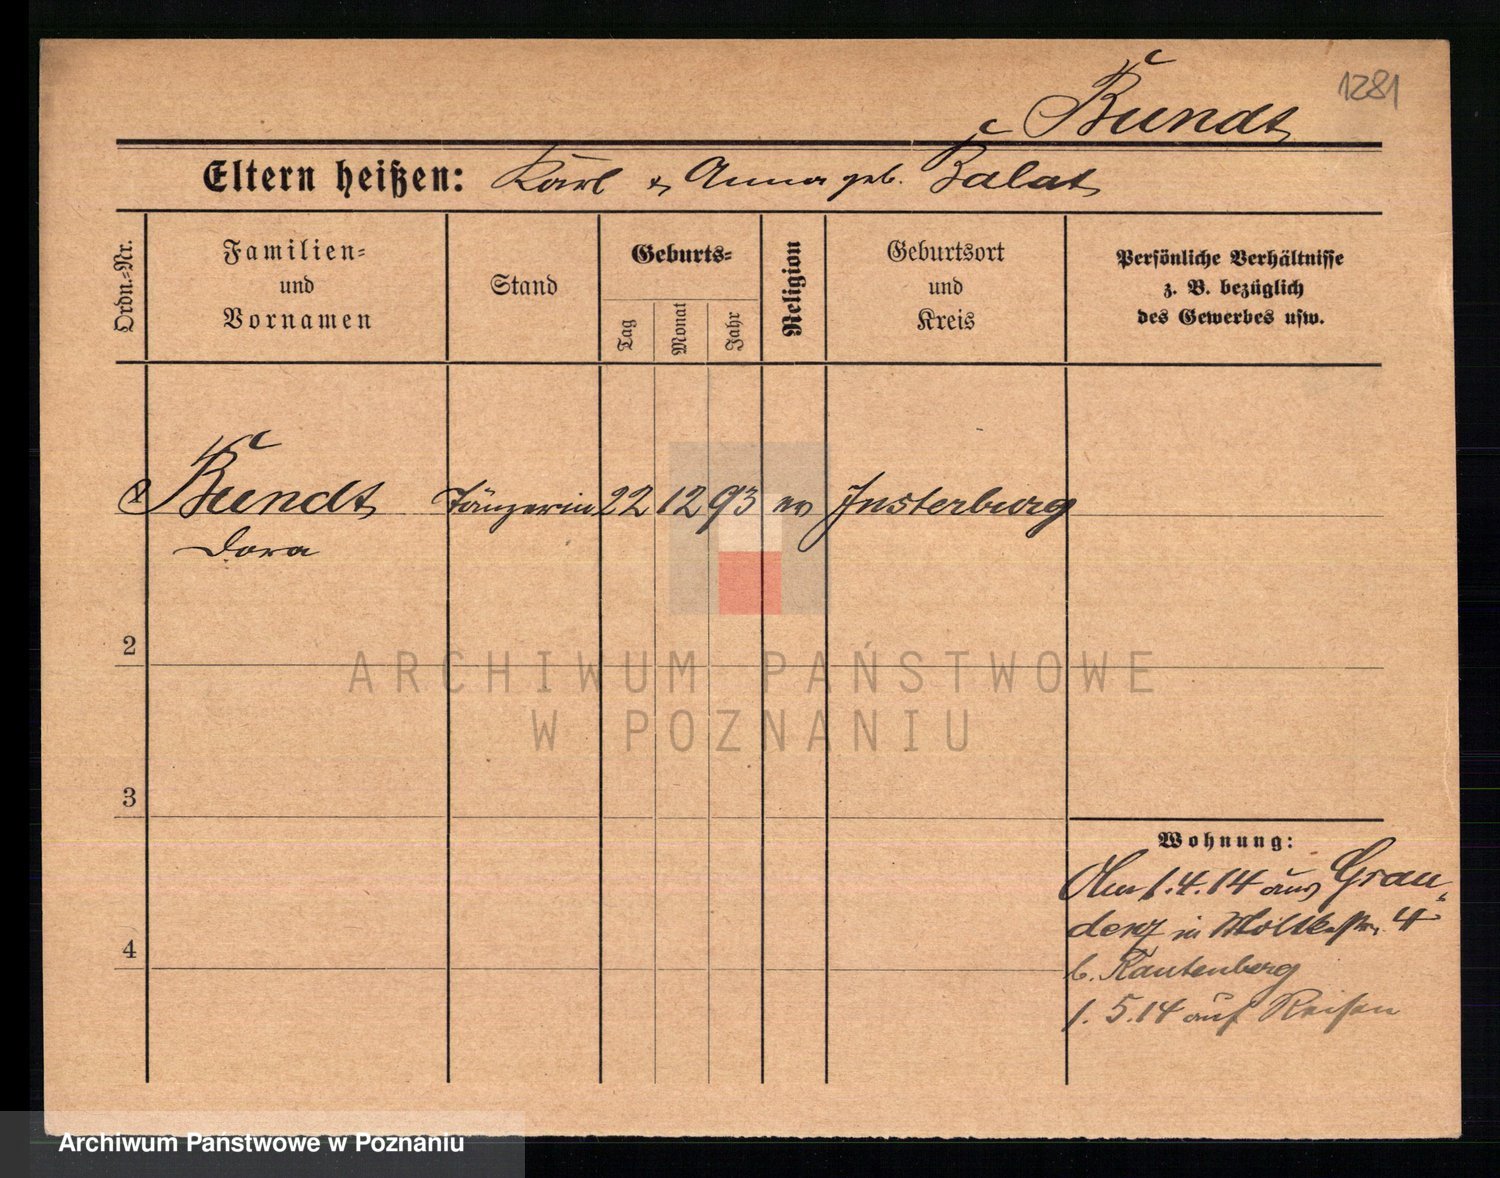 1281
Bundt
Eltern heißen: Karl & Anna geb. Balat
Ordn.=Nr.
Familien=
und
Vornamen
Stand
Geburts=
Tag
Monat
Jahr
Religion
Geburtsort
und
Kreis
Persönliche Verhältnisse
z. B. bezüglich
des Gewerbes usw.
1 Bundt Tänzerin 22 12 93 ev Insterburg
Dora
2
3
4
Wohnung:
Am 1.4.14 aus Grau-
denz in Moltkestr. 4
b. Rautenberg
1.5.14 auf Reisen
ARCHIWUM PAŃSTWOWE
W POZNANIU
Archiwum Państwowe w Poznaniu